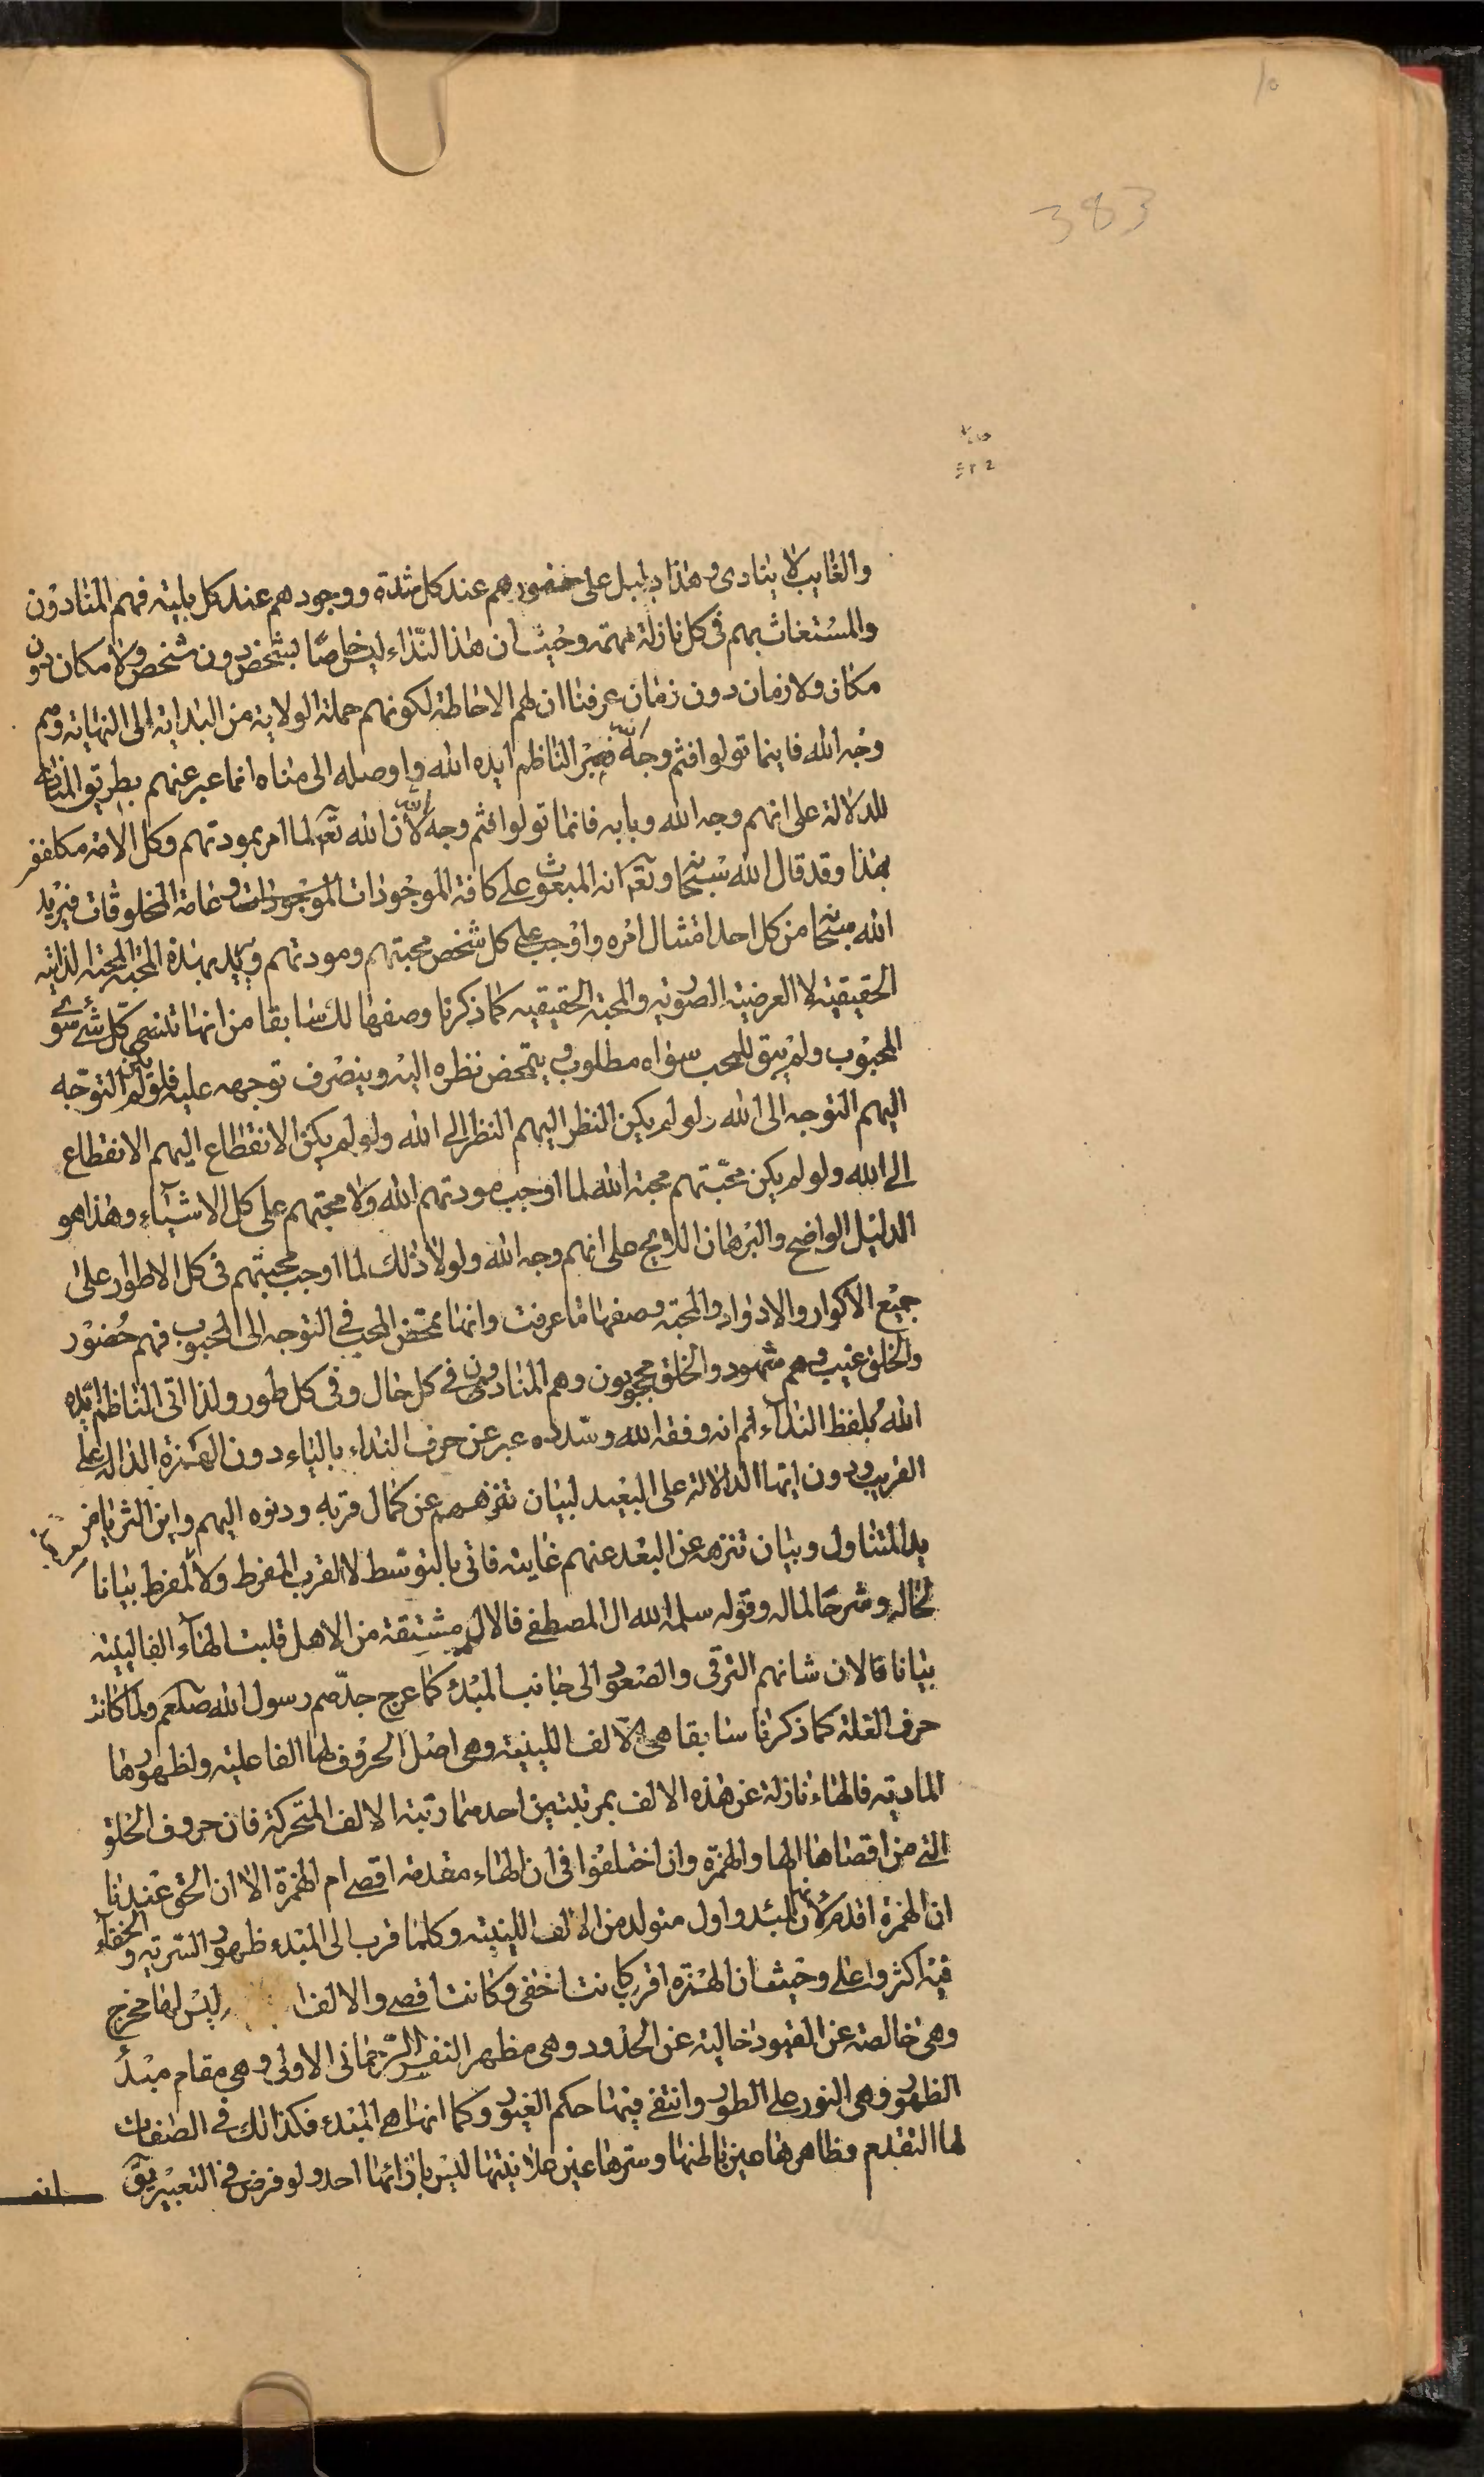 10
383
والغايب لا ينادى وهذا دليل على حضورهم عند كل شدة ووجودهم عند كل بلية فهم المنادون
والمستغاث بهم فى كل نازلة مهمة وحيث ان هذا النداء ليس خاصا بشخص دون شخص ولا مكان دون
مكان ولا زمان دون زمان عرفنا ان لهم الاحاطة لكونهم حملة الولاية من البداية الى النهاية وهم
وجه الله فاينما تولوا فثم وجه الله الناظم ايده الله واوصله الى مناه انما عبر عنهم بطريق المناداة
للدلالة على انهم وجه الله وبابه فانما تولوا فثم وجه الله لان الله تعا لما امر بمودتهم وكل الامة مكلفون
بهذا وقد قال الله سبحانه وتعا انه المبعوث على كافة الموجودات وعامة المخلوقات فيريد
الله سبحانه من كل احد امتثال امره واوجب على كل شخص محبتهم ومودتهم ويريد بهذه المحبة المحبة الذاتية
الحقيقية لا العرضية الصورية والمحبة الحقيقيه كما ذكرنا وصفها لك سابقا من انها تنسى كل شئ سوى
المحبوب ولم يبق للمحب سواه مطلوب ويتمحض نظره اليه وينصرف توجهه عليه فلو لم يكن التوجه
اليهم التوجه الى الله ولو لم يكن النظر اليهم النظر الى الله ولو لم يكن الانقطاع اليهم الانقطاع
الى الله ولو لم يكن محبتهم محبة الله لما اوجب مودتهم الله ولا محبتهم على كل الاشياء وهذا هو
الدليل الواضح والبرهان اللايح على انهم وجه الله ولولا ذلك لما اوجب محبتهم فى كل الاطوار على
جميع الاكوار والادوار والمحبة وصفها ما عرفت وانها تمحض المحب فى التوجه الى المحبوب فهم حضور
والخلق غيب وهم شهود والخلق محجوبون وهم المنادون فى كل حال وفى كل طور ولذا اتى الناظم ايده
الله بلفظ النداء ثم انه وفقه الله وسدده عبر عن حرف النداء بالياء دون الهمزة الدالة على
القريب ودون ايها الدلالة على البعيد لبيان تنزههم عن كمال قربه ودنوه اليهم واين الثريا من
يد المتناول وبيان تنزهه عن البعد عنهم غايته فاتى بالتوسط لا القرب المفرط ولا المفرط بيانا
لحاله وشرحا لماله وقوله سلمه الله ال المصطفى فالال مشتقة من الاهل قلبت الهاء الفا لينية
بيانا فالان شانهم الترقى والصعود الى جانب المبدء كما عرج جدهم رسول الله صلعم ولما كانت
حرف العلة كما ذكرنا سابقا هى الالف اللينية وهى اصل الحروف لها الفاعلية ولظهورها
المادية فالهاء نازلة عن هذه الالف بمرتبتين احدهما رتبة الالف المتحركة فان حروف الحلق
التى من اقصاها الها والهمزة وان اختلفوا فى ان الهاء مقدمة اقصى ام الهمزة الا ان الحق عندنا
ان الهمزة اقدم لانها المبدء واول متولد من الالف اللينية وكلما قرب الى المبدء ظهور السرية والخفاء
فيه اكثر واعلى وحيث ان الهمزة اقرب كانت اخفى وكانت اقصى والالف ليس لها مخرج
وهى خالصة عن القيود خالية عن الحدود وهى مظهر النفس الرحمانى الاولى وهى مقام مبدء
الظهور وهى النور على الطور وانتفى فيها حكم الغيور وكما انها هى المبدء فكذلك فى الصفات
لها التقدم وظاهرها عين باطنها وسرها عين علانيتها ليس بازائها احد ولو فرض فى التعبير يق